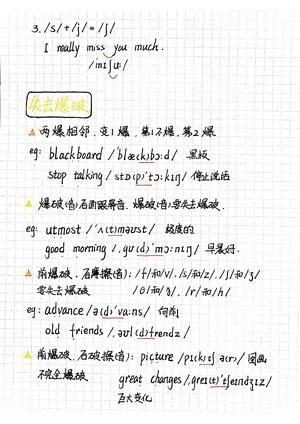 3. /s/ + /j/ = /ʃ/
I really miss you much.
/mɪʃuː/
失去爆破
两爆相邻，变1爆，第1不爆，第2爆
eg: blackboard /ˈblæ(k)bɔːd/ 黑板
stop talking /stɒ(p)ˈtɔːkɪŋ/ 停止说话
爆破(音)后面跟鼻音，爆破(音)要失去爆破.
eg: utmost /ˈʌ(t)məʊst/ 极度的
good morning /ˌɡʊ(d)ˈmɔːnɪŋ/ 早晨好.
前爆破、后摩擦(音)：/f/和/v/、/s/和/z/、/ʃ/和/ʒ/
要失去爆破 /θ/和/ð/、/r/和/h/
eg: advance /ə(d)ˈvɑːns/ 向前
old friends /ˌəʊl(d)frendz/
前爆破、后破擦(音)： picture /pɪ(k)tʃə(r)/ 图画
不完全爆破 great changes /ˌɡreɪ(t)ˈtʃeɪndʒɪz/
巨大变化